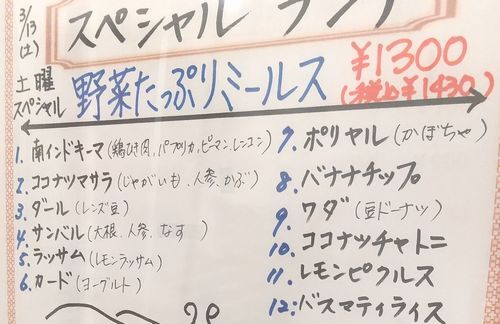 3/13(土)
スペシャル ランチ
土曜スペシャル
野菜たっぷりミールス
¥1300
(税込¥1430)
1. 南インドキーマ(鶏ひき肉、パプリカ、ピーマン、レンコン)
2. ココナツマサラ(じゃがいも、人参、かぶ)
3. ダール(レンズ豆)
4. サンバル(大根、人参、なす)
5. ラッサム(レモンラッサム)
6. カード(ヨーグルト)
7. ポリヤル(かぼちゃ)
8. バナナチップ
9. ワダ(豆ドーナツ)
10. ココナツチャトニ
11. レモンピクルス
12. バスマティライス